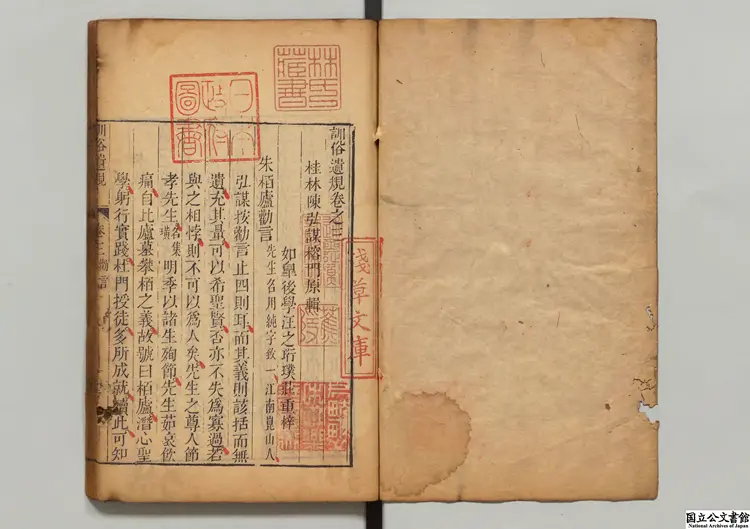 訓俗遺規卷之三
桂林陳弘謀榕門原輯
如皐後學汪之珩璞莊重梓
朱栢廬勸言 先生名用純字致一江南崑山人
弘謀按勸言止四則耳而其義則該括而無
遺充其量可以希聖賢否亦不失為寡過若
與之相悖則不可以為人矣先生之尊人節
孝先生 名集璜 明季以諸生殉節先生茹哀飲
痛自比廬墓攀栢之義故號曰栢廬潛心聖
學躬行實踐杜門授徒多所成就讀此可知
訓俗遺規 卷三 勸言
林氏藏書
日本政府圖書
淺草文庫
国立公文書館
National Archives of Japan